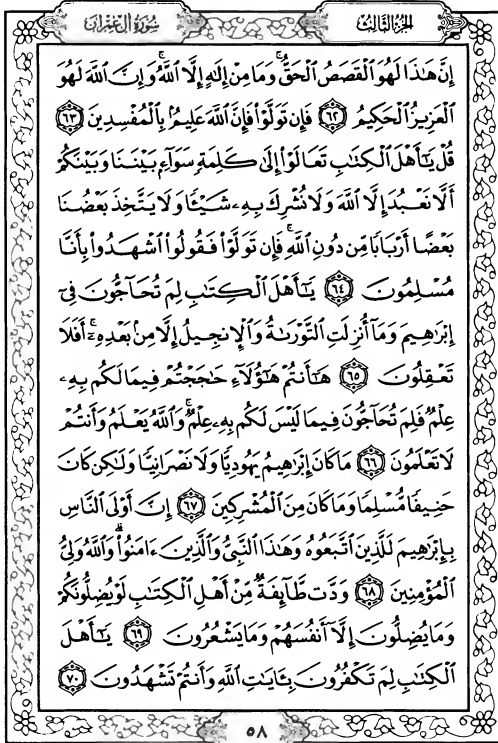 سُورَةُ آلِ عِمْرَانَ
الجُزْءُ الثَّالِثُ
إِنَّ هَٰذَا لَهُوَ ٱلْقَصَصُ ٱلْحَقُّ ۚ وَمَا مِنْ إِلَٰهٍ إِلَّا ٱللَّهُ ۚ وَإِنَّ ٱللَّهَ لَهُوَ
ٱلْعَزِيزُ ٱلْحَكِيمُ ٦٢ فَإِن تَوَلَّوْا۟ فَإِنَّ ٱللَّهَ عَلِيمٌۢ بِٱلْمُفْسِدِينَ ٦٣
قُلْ يَٰٓأَهْلَ ٱلْكِتَٰبِ تَعَالَوْا۟ إِلَىٰ كَلِمَةٍ سَوَآءٍۭ بَيْنَنَا وَبَيْنَكُمْ
أَلَّا نَعْبُدَ إِلَّا ٱللَّهَ وَلَا نُشْرِكَ بِهِۦ شَيْـًٔا وَلَا يَتَّخِذَ بَعْضُنَا
بَعْضًا أَرْبَابًا مِّن دُونِ ٱللَّهِ ۚ فَإِن تَوَلَّوْا۟ فَقُولُوا۟ ٱشْهَدُوا۟ بِأَنَّا
مُسْلِمُونَ ٦٤ يَٰٓأَهْلَ ٱلْكِتَٰبِ لِمَ تُحَآجُّونَ فِىٓ
إِبْرَٰهِيمَ وَمَآ أُنزِلَتِ ٱلتَّوْرَىٰةُ وَٱلْإِنجِيلُ إِلَّا مِنۢ بَعْدِهِۦٓ ۚ أَفَلَا
تَعْقِلُونَ ٦٥ هَٰٓأَنتُمْ هَٰٓؤُلَآءِ حَٰجَجْتُمْ فِيمَا لَكُم بِهِۦ
عِلْمٌ فَلِمَ تُحَآجُّونَ فِيمَا لَيْسَ لَكُم بِهِۦ عِلْمٌ ۚ وَٱللَّهُ يَعْلَمُ وَأَنتُمْ
لَا تَعْلَمُونَ ٦٦ مَا كَانَ إِبْرَٰهِيمُ يَهُودِيًّا وَلَا نَصْرَانِيًّا وَلَٰكِن كَانَ
حَنِيفًا مُّسْلِمًا وَمَا كَانَ مِنَ ٱلْمُشْرِكِينَ ٦٧ إِنَّ أَوْلَى ٱلنَّاسِ
بِإِبْرَٰهِيمَ لَلَّذِينَ ٱتَّبَعُوهُ وَهَٰذَا ٱلنَّبِىُّ وَٱلَّذِينَ ءَامَنُوا۟ ۗ وَٱللَّهُ وَلِىُّ
ٱلْمُؤْمِنِينَ ٦٨ وَدَّت طَّآئِفَةٌ مِّنْ أَهْلِ ٱلْكِتَٰبِ لَوْ يُضِلُّونَكُمْ
وَمَا يُضِلُّونَ إِلَّآ أَنفُسَهُمْ وَمَا يَشْعُرُونَ ٦٩ يَٰٓأَهْلَ
ٱلْكِتَٰبِ لِمَ تَكْفُرُونَ بِـَٔايَٰتِ ٱللَّهِ وَأَنتُمْ تَشْهَدُونَ ٧٠
٥٨